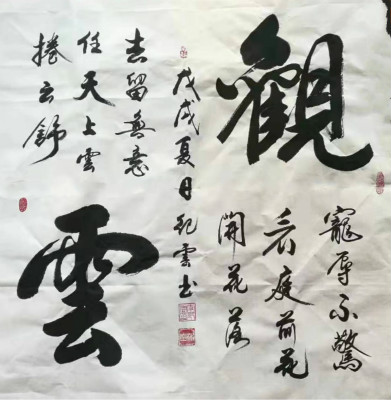 觀
寵辱不驚
看庭前花
開花落
雲
去留無意
任天上雲
捲云舒
戊戌夏日紀雲书